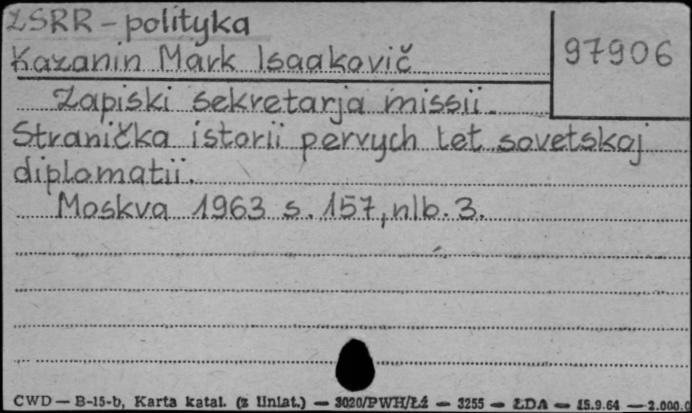 ZSRR - polityka
97906
Kazanin Mark Isaakovič
Zapiski sekretarja missii.
Stranička istorii pervych let sovetskoj
diplomatii.
Moskva 1963 s. 157, nlb. 3.
CWD — B-15-b, Karta katal. (z liniat.) — 3020/PWH/Łź — 3255 — ŁDA — 15.9.64 — 2.000.0